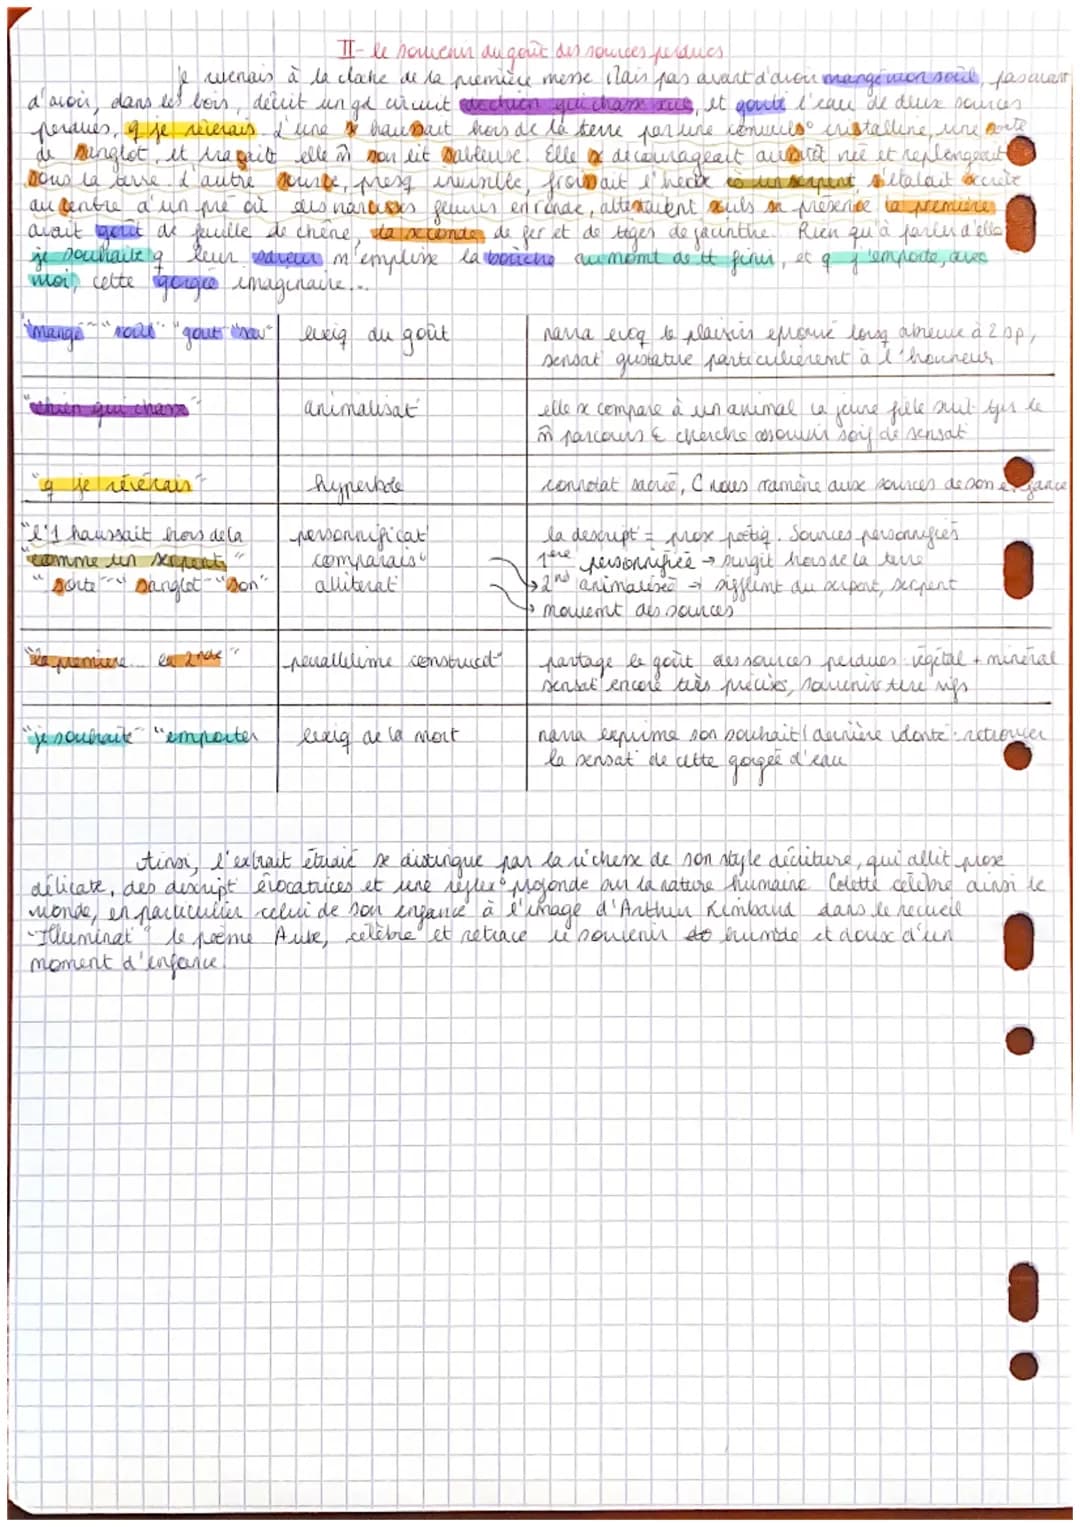 II- le souvenir du goût des sources perdues
je revenais à la cloche de la première messe. Mais pas avant d'avoir mangé mon soûl, pas avant
d'avoir, dans les bois, décrit un gd circuit de chien qui chasse seul, et goûté l'eau de deux sources
perdues, q je révérais. L'une x haussait hors de la terre par une convuls° cristalline, une sorte
de sanglot, et traçait elle m̂ son lit sableux. Elle x décourageait aussitôt née et replongeait
sous la terre. L'autre source, presq invisible, froissait l'herbe cō un serpent, s'étalait secrète
au centre d'un pré où des narcisses, fleuris en ronde, attestaient seuls sa présence. la première
avait goût de feuille de chêne, la seconde de fer et de tiges de jacinthe. Rien qu'à parler d'elles
je souhaite q leur saveur m'emplisse la bouche au momt de tt finir, et q j'emporte, avec
moi, cette gorgée imaginaire...
"mangé" "soûl" "gout" "sav" lexiq du goût narra evoq le plaisir éprouvé lorsq abreuve à 2 sp,
sensat° gustative particulièrement à l'honneur
"chien qui chasse" animalisat° elle x compare à un animal la jeune fille suit tjrs le
m̂ parcours & cherche assouvir soif de sensat°
"q je révérais" hyperbole connotat° sacrée, C nous ramène aux sources de son enfance
"l'1 haussait hors de la personnificat° la descript° = prose poétiq. Sources personnifiées
"comme un serpent" comparais° 1ère personnifiée → surgit hors de la terre
"sorte" "sanglot" "son" alliterat° 2nd animalisée → sifflemt du serpent, serpent
mouvemt des sources
"la première... la 2nde" parallélisme construct° partage le goût des sources perdues : végétal + minéral
sensat° encore très précises, souvenirs tere vifs
"je souhaite" "emporter lexiq de la mort narra exprime son souhait / dernière volonté : retrouver
la sensat° de cette gorgée d'eau
Ainsi, l'extrait étudié se distingue par la richesse de son style d'écriture, qui allit prose
délicate, des descript° évocatrices et une réflex° profonde sur la nature humaine. Colette célèbre ainsi le
monde, en particulier celui de son enfance à l'image d'Arthur Rimbaud dans le recueil
"Illuminat°" le poème Aube, célèbre et retrace le souvenir humide et doux d'un
moment d'enfance.